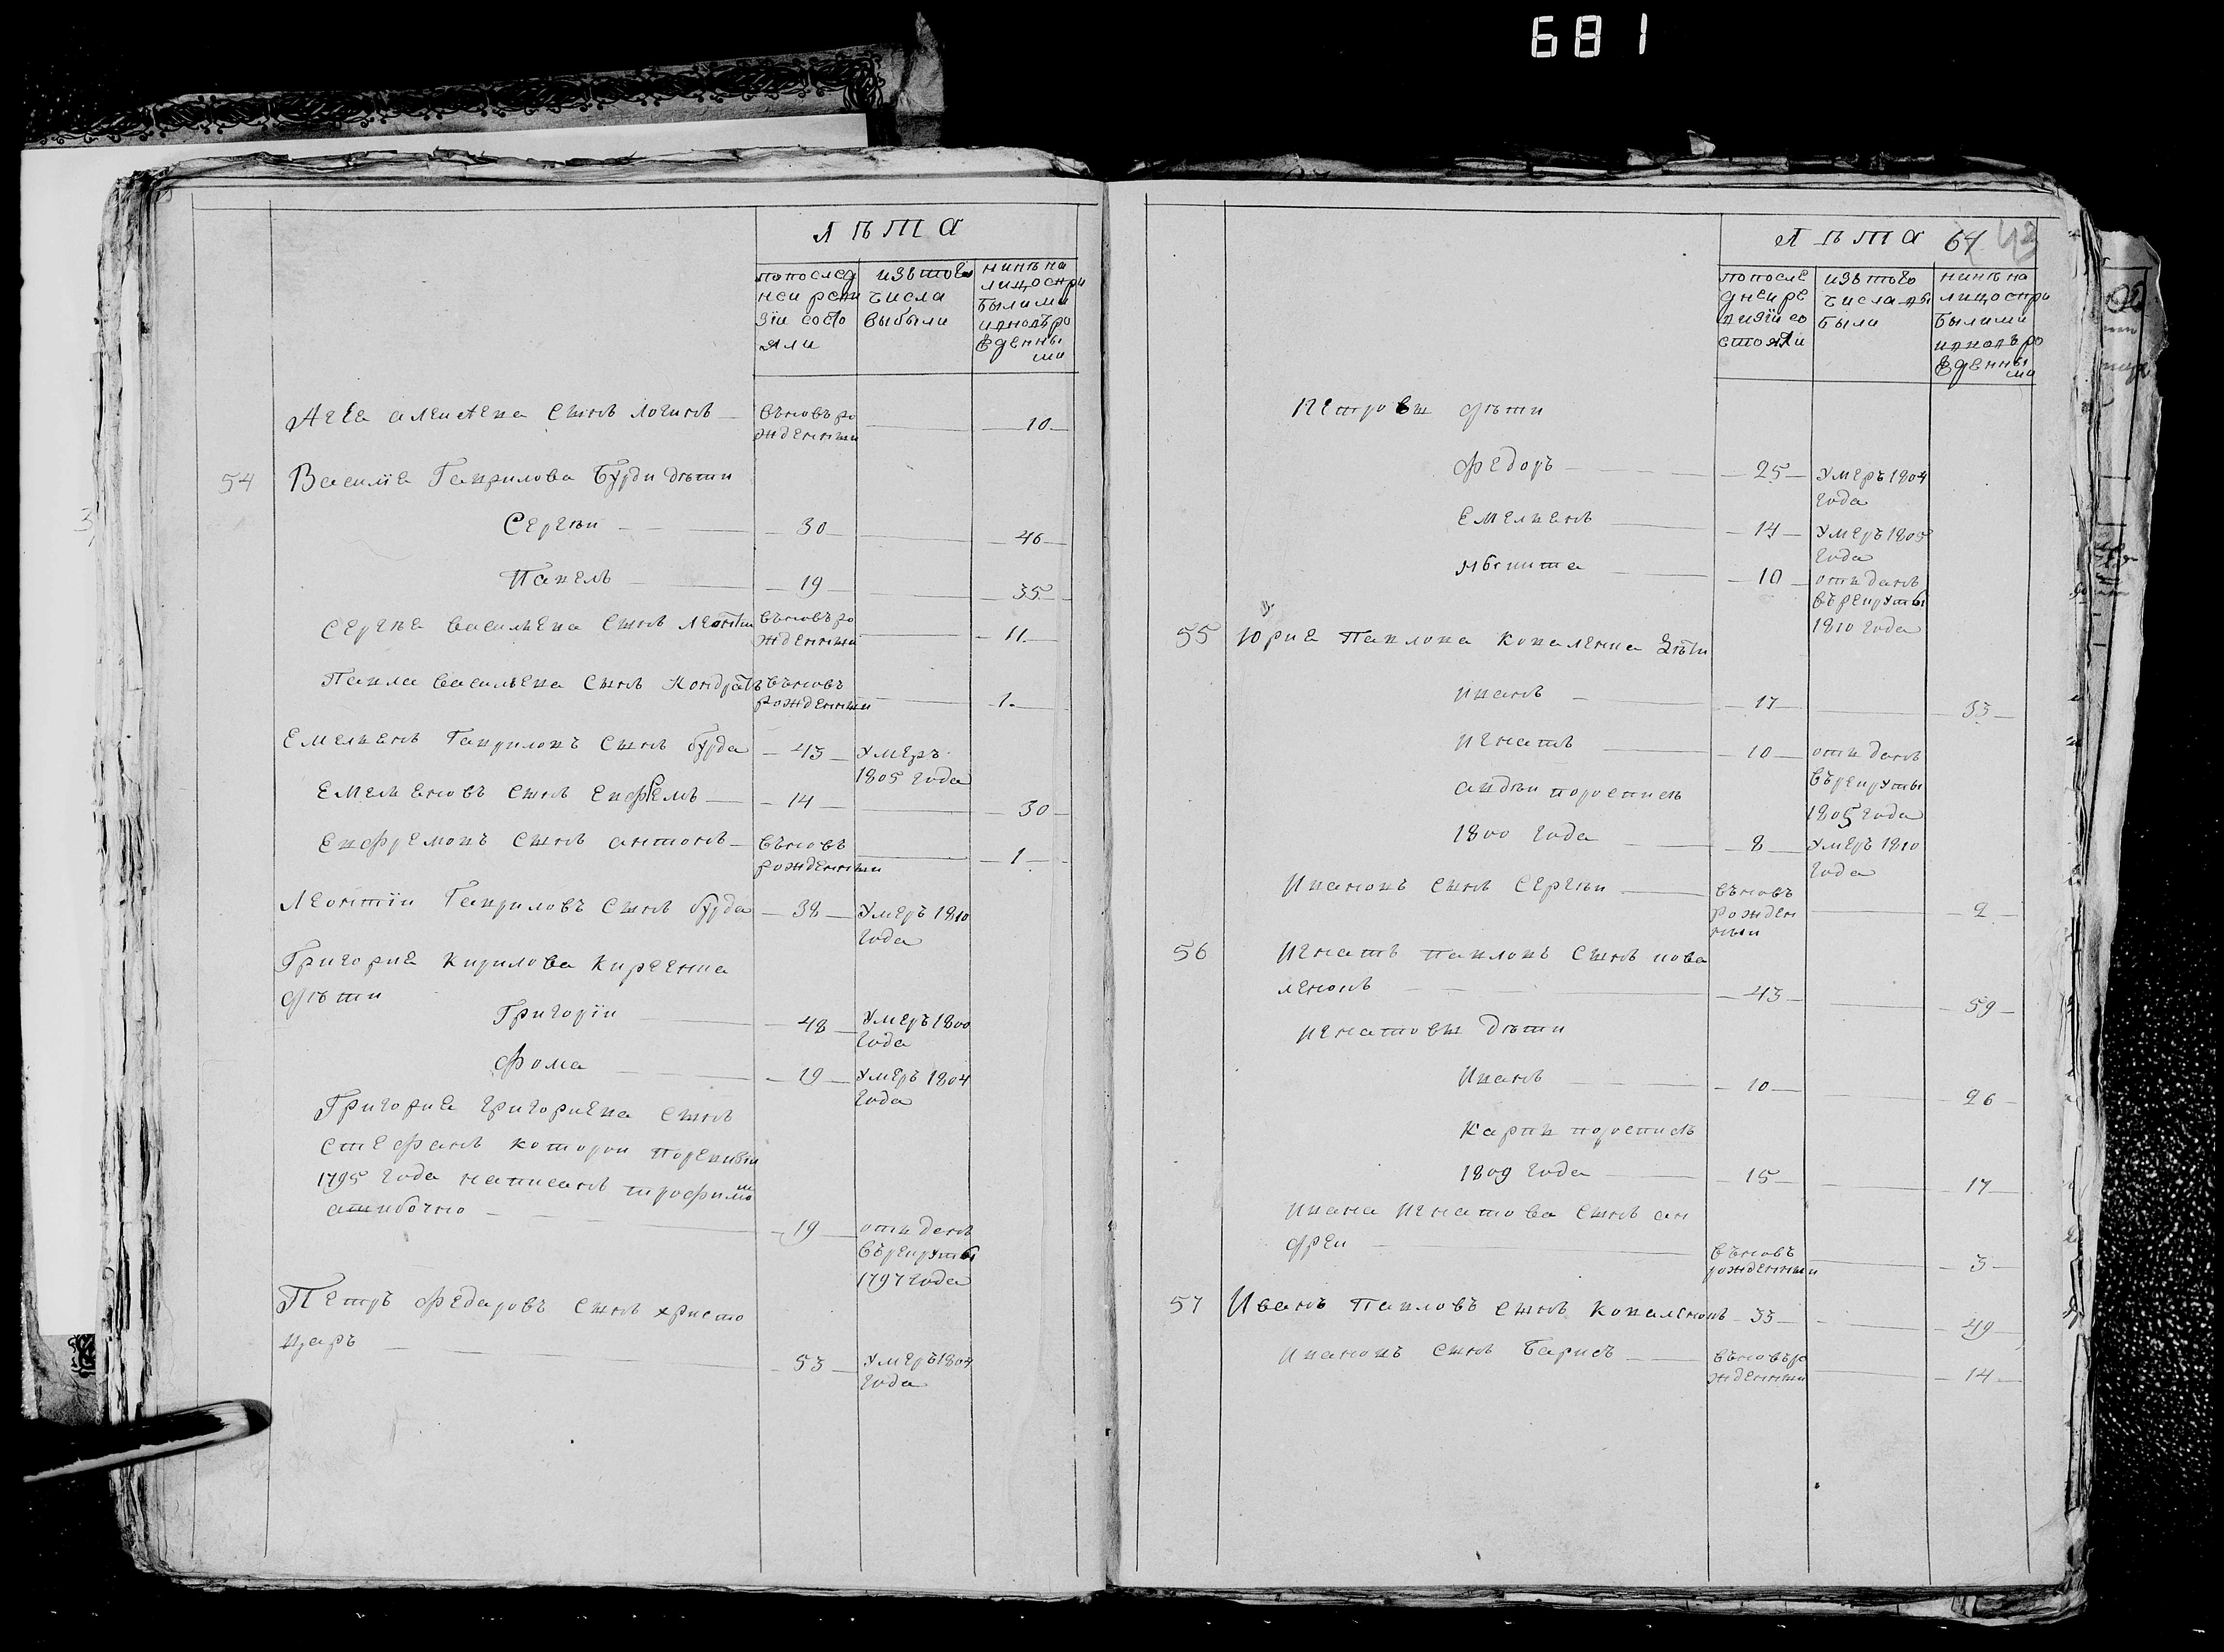 681
Лѣта
попослед
неи реви
зiи состо
яли
изътого
числа
выбыли
нинѣ на
лицо спри
былими
иновъро
жденны
ми
Агѣа алексѣева сынъ логинъ
вѣновъ ро
жденныи
10
54
Василiя Гаврилова Бурди дѣти
Сергѣи
30
46
Павелъ
19
35
Сергѣя васильева сынъ леонтiи
вѣновъ ро
жденныи
11
Павла васильева сынъ кондратъ
вѣновъ
рожденныи
1
Емельянъ Гавриловъ сынъ бурда
43
умеръ
1805 года
Емельяновъ сынъ ефремъ
14
30
Ефремовъ сынъ антонъ
вѣновъ
рожденныи
1
Леонтiи Гавриловъ сынъ бурда
38
умеръ 1810
года
Григория Кирилова Киреенка
дѣти
Григорiи
48
умеръ 1800
года
фома
19
умеръ 1804
года
Григория григориева сынъ
стефанъ которои поревизiи
1795 года написанъ трофимомъ
ашибочно
19
отъ данъ
въ рекруты
1797 года
Петръ федаровъ сынъ христо
царъ
53
умеръ 1804
года
Лѣта 64 43
попосле
днеи ре
визiи со
стояли
изътого
числа вы
были
нинѣ на
лицо спри
былими
иновъ ро
жденны
ми
Петровы дѣти
федоръ
25
умеръ 1804
года
Емельянъ
14
умеръ 1805
года
никита
10
отъ данъ
въ рекруты
1810 года
55
юрия Павлова коваленка дѣти
иванъ
17
33
игнатъ
10
отъ данъ
въ рекруты
1805 года
андрѣи поросписѣ
1800 года
8
умеръ 1810
года
Ивановъ сынъ сергѣи
вѣновъ
рожден
ныи
2
56
Игнатъ павловъ сынъ кова
ленокъ
43
59
игнатовы дѣти
Иванъ
10
26
карпъ поросписѣ
1809 года
15
17
Ивана игнатова сынъ ан
дреи
вѣновъ
рожденныи
3
57
Иванъ павловъ сынъ коваленокъ
33
49
Ивановъ сынъ Барисъ
вѣновъ ро
жденныи
14